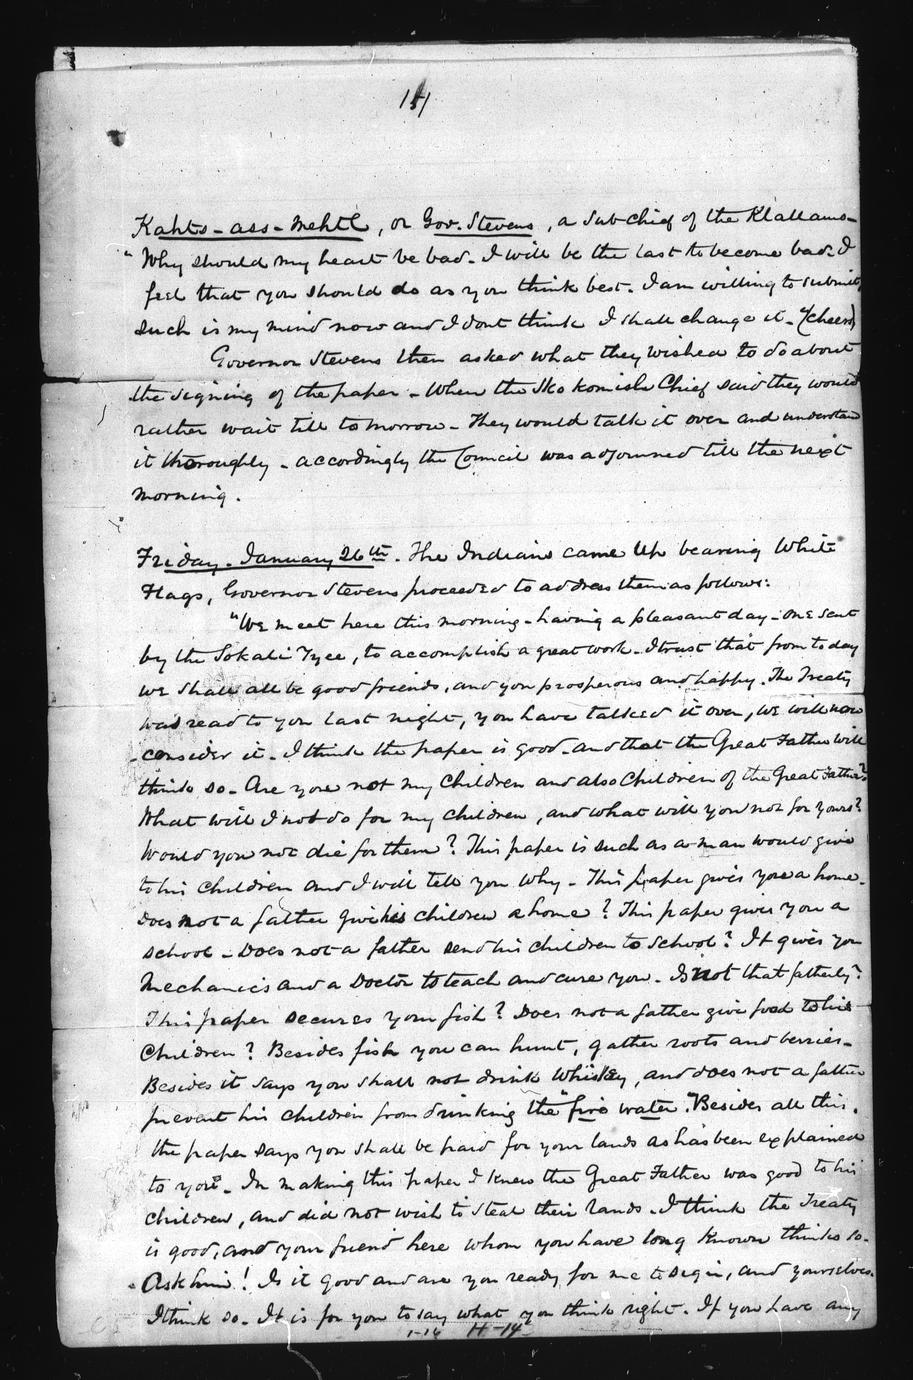 151
Kahts-ass-mehtl, or Gov. Stevens, a sub chief of the Klallams-
"Why should my heart be bad. I will be the last to become bad. I
feel that you should do as you think best. I am willing to submit,
such is my mind now and I dont think I shall change it - (cheers)
Governor Stevens then asked what they wished to do about
the signing of the paper - When the Sko komish Chief said they would
rather wait till to morrow - They would talk it over and understand
it thoroughly - accordingly the Council was adjourned till the next
morning.
Friday - January 26th. The Indians came up bearing White
Flags, Governor Stevens proceeded to address them as follows:
"We meet here this morning - having a pleasant day - one sent
by the Sokali Tyee, to accomplish a great work - I trust that from to day
we shall all be good friends, and you prosperous and happy. The Treaty
was read to you last night, you have talked it over, we will now
consider it - I think the paper is good - and that the Great Father will
think so - Are you not my children and also Children of the Great Father?
What will I not do for my children, and what will you not for yours?
Would you not die for them? This paper is such as a man would give
to his children and I will tell you why - This paper gives you a home -
Does not a father give his children a home? This paper gives you a
school - Does not a father send his children to School? It gives you
Mechanics and a Doctor to teach and cure you - Is not that fatherly?
This paper secures your fish? Does not a father give food to his
Children? Besides fish you can hunt, gather roots and berries -
Besides it says you shall not drink whiskey, and does not a father
prevent his children from drinking the "fire water". Besides all this,
the paper says you shall be paid for your lands as has been explained
to you - In making this paper I knew the Great Father was good to his
children, and did not wish to steal their lands - I think the Treaty
is good, and your friend here whom you have long known thinks so -
Ask him! Is it good and are you ready for me to sign, and yourselves -
I think so - It is for you to say what you think right - If you have any
1-16 H-14